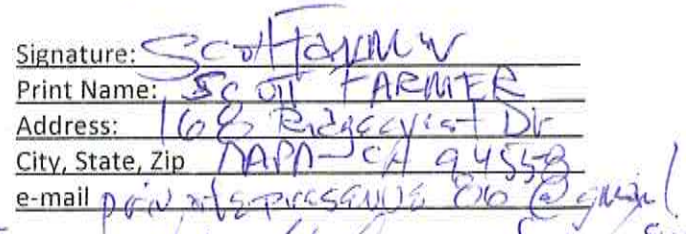 Signature: Scott Farmer
Print Name: Scott FARMER
Address: 168 Ridgecrest Dr
City, State, Zip NAPA CA 94558
e-mail @gmail